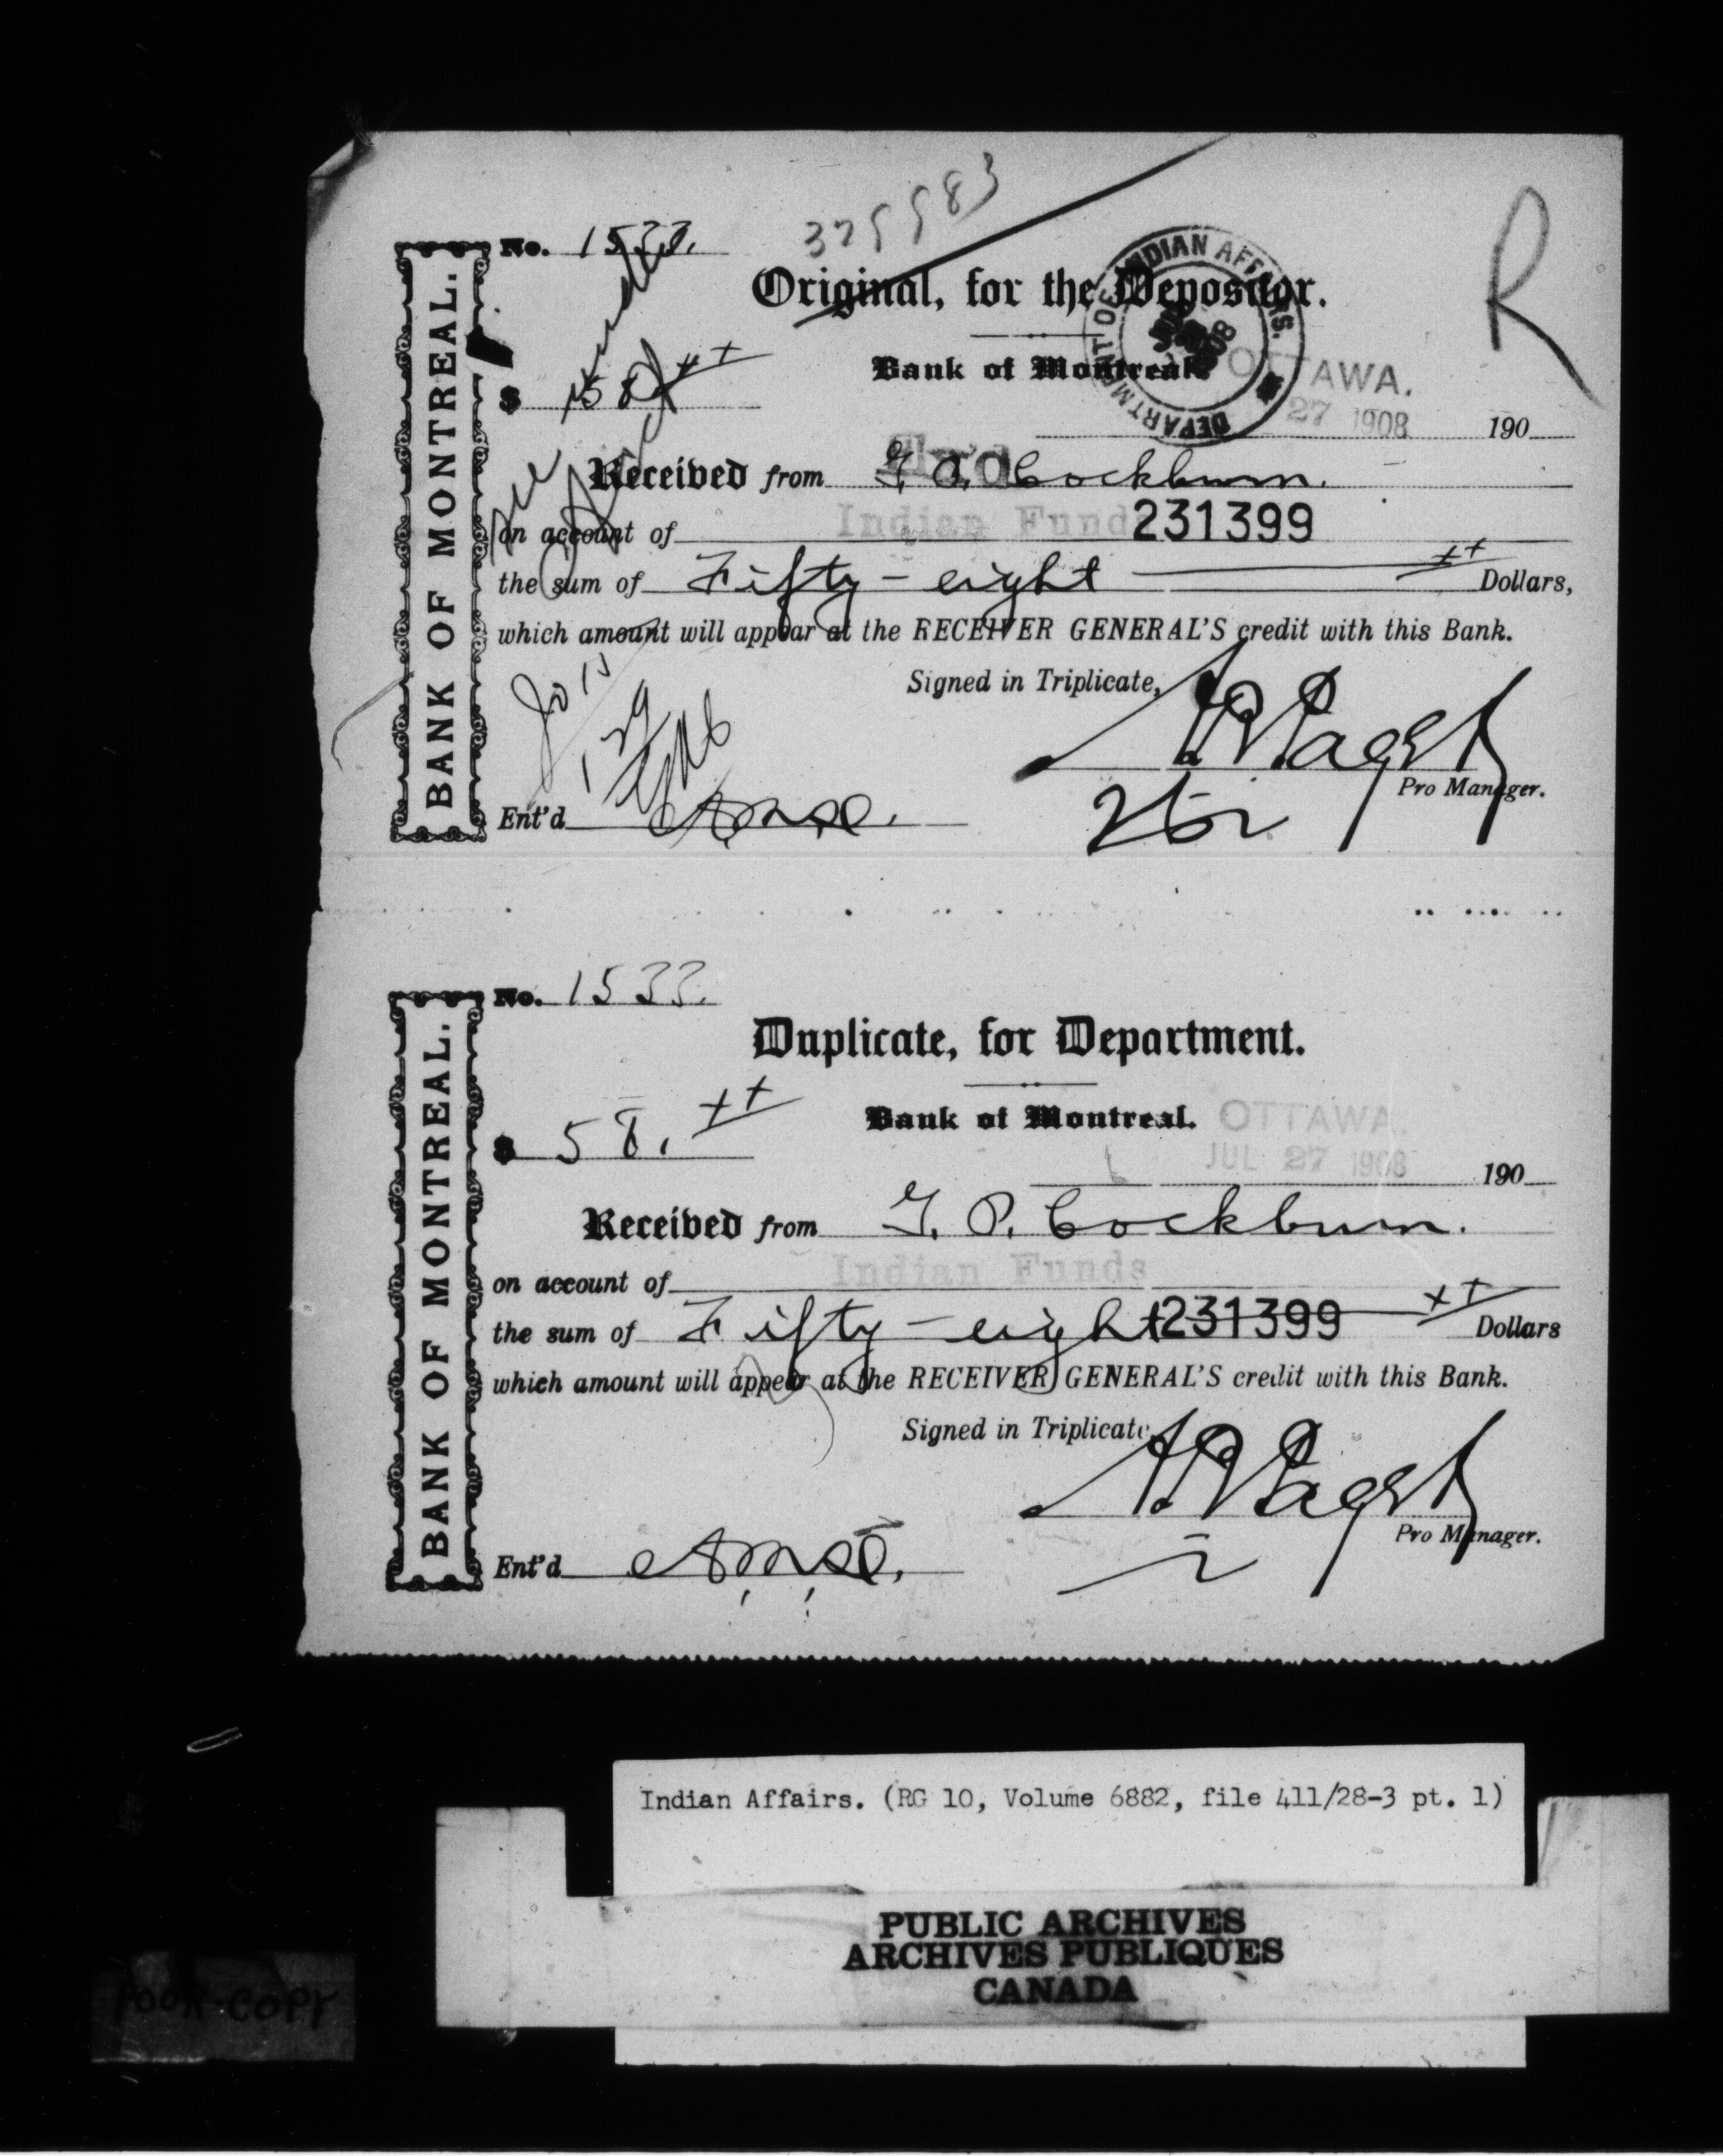 BANK OF MONTREAL.
No. 1533.
R
Original, for the Depositor.
DEPARTMENT OF INDIAN AFFAIRS.
1908
$ 58 xx
Bank of Montreal.
OTTAWA.
27 1908
190
Received from G. P. Cockburn.
on account of Indian Funds 231399
the sum of Fifty-eight xx Dollars,
which amount will appear at the RECEIVER GENERAL'S credit with this Bank.
Signed in Triplicate,
Pro Manager.
Ent'd
BANK OF MONTREAL.
No. 1533.
Duplicate, for Department.
$ 58. xx
Bank of Montreal.
OTTAWA.
JUL 27 1908
190
Received from G. P. Cockburn.
on account of Indian Funds
the sum of Fifty-eight 231399 xx Dollars
which amount will appear at the RECEIVER GENERAL'S credit with this Bank.
Signed in Triplicate,
Pro Manager.
Ent'd
Indian Affairs. (RG 10, Volume 6882, file 411/28-3 pt. 1)
PUBLIC ARCHIVES
ARCHIVES PUBLIQUES
CANADA
POOR COPY